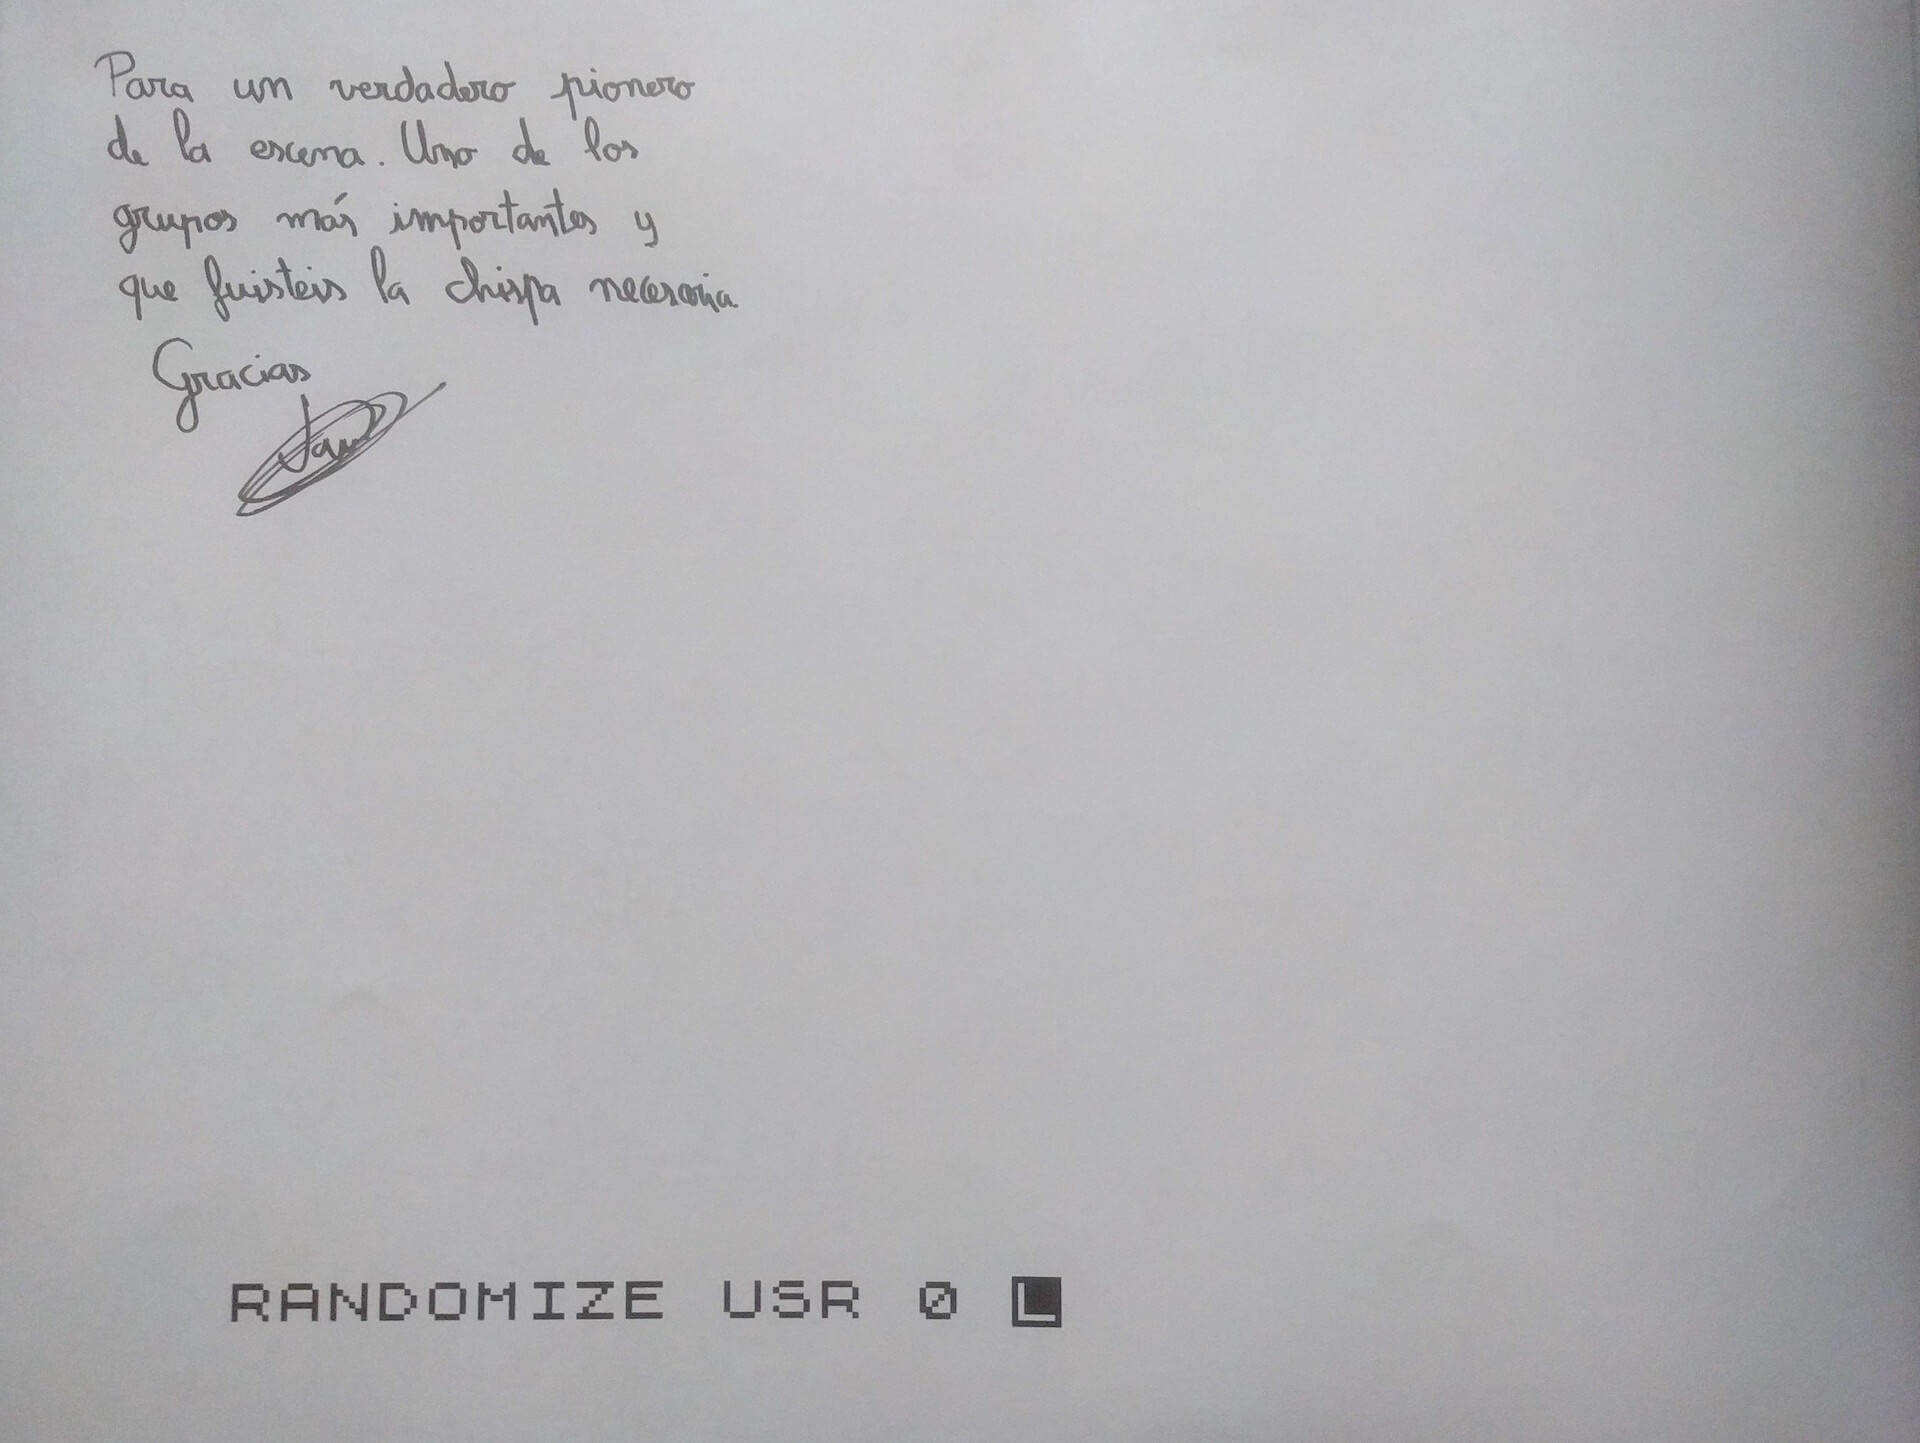 Para un verdadero pionero
de la escena. Uno de los
grupos más importantes y
que fuisteis la chispa necesaria.
Gracias
RANDOMIZE USR 0 L